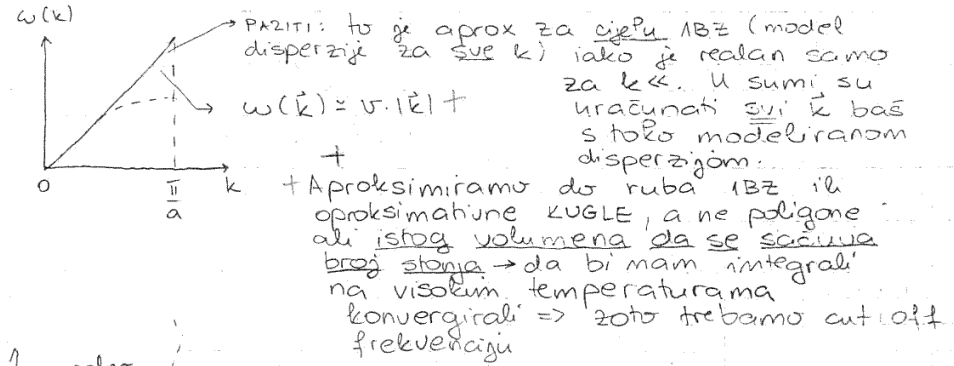 ω(k)
→ PAZITI: to je aprox za cijelu 1BZ (model
disperzije za sve k) iako je realan samo
za k<<. U sumi su
→ ω(k⃗) ≃ v·|k⃗| +
uračunati svi k⃗ baš
s tako modeliranom
disperzijom.
+
0
π/a
k
+ Aproksimiramo do ruba 1BZ ili
aproksimativne KUGLE, a ne poligone
ali istog volumena da se sačuva
broj stanja → da bi nam integrali
na visokim temperaturama
konvergirali => zato trebamo cut off
frekvenciju